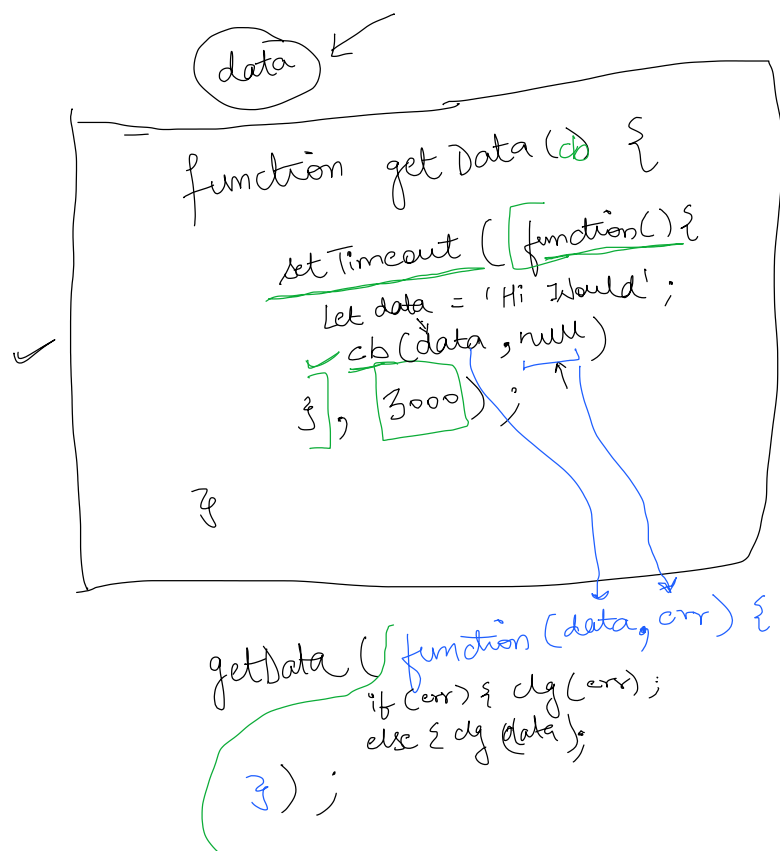 data
function getData(cb) {
setTimeout ( function() {
Let data = 'Hi Would';
cb(data, null)
}, 3000) ;
}
getData ( function (data, err) {
if (err) { clg (err) ;
else { clg (data);
}) ;